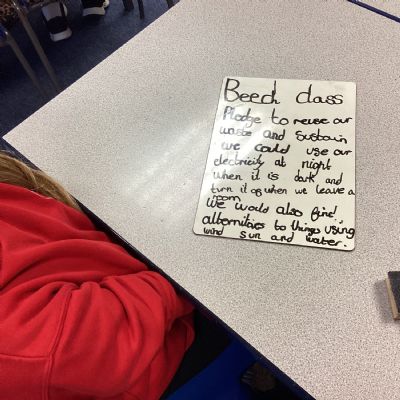 Beech class
Pledge to reuse our
waste and sustain
we could use our
electricity at night
when it is dark and
turn it off when we leave a
room.
We would also find
alternitives to things using
wind sun and water.